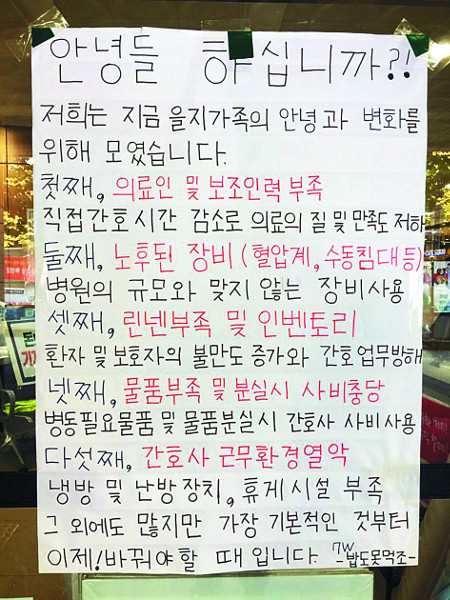 안녕들 하십니까?!
저희는 지금 을지가족의 안녕과 변화를
위해 모였습니다.
첫째, 의료인 및 보조인력 부족
직접간호시간 감소로 의료의 질 및 만족도 저하
둘째, 노후된 장비 (혈압계, 수동침대 등)
병원의 규모와 맞지 않는 장비사용
셋째, 린넨부족 및 인벤토리
환자 및 보호자의 불만도 증가와 간호업무방해
넷째, 물품부족 및 분실시 사비충당
병동필요물품 및 물품분실시 간호사 사비사용
다섯째, 간호사 근무환경열악
냉방 및 난방장치, 휴게시설 부족
그 외에도 많지만 가장 기본적인 것부터
이제! 바꿔야할 때 입니다. 7W -밥도못먹조-